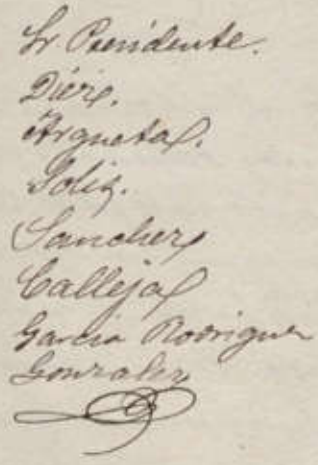 Sr Presidente.
Diez.
Argueta.
Solis.
Sanchez
Calleja
Garcia Rodriguez
Gonzalez